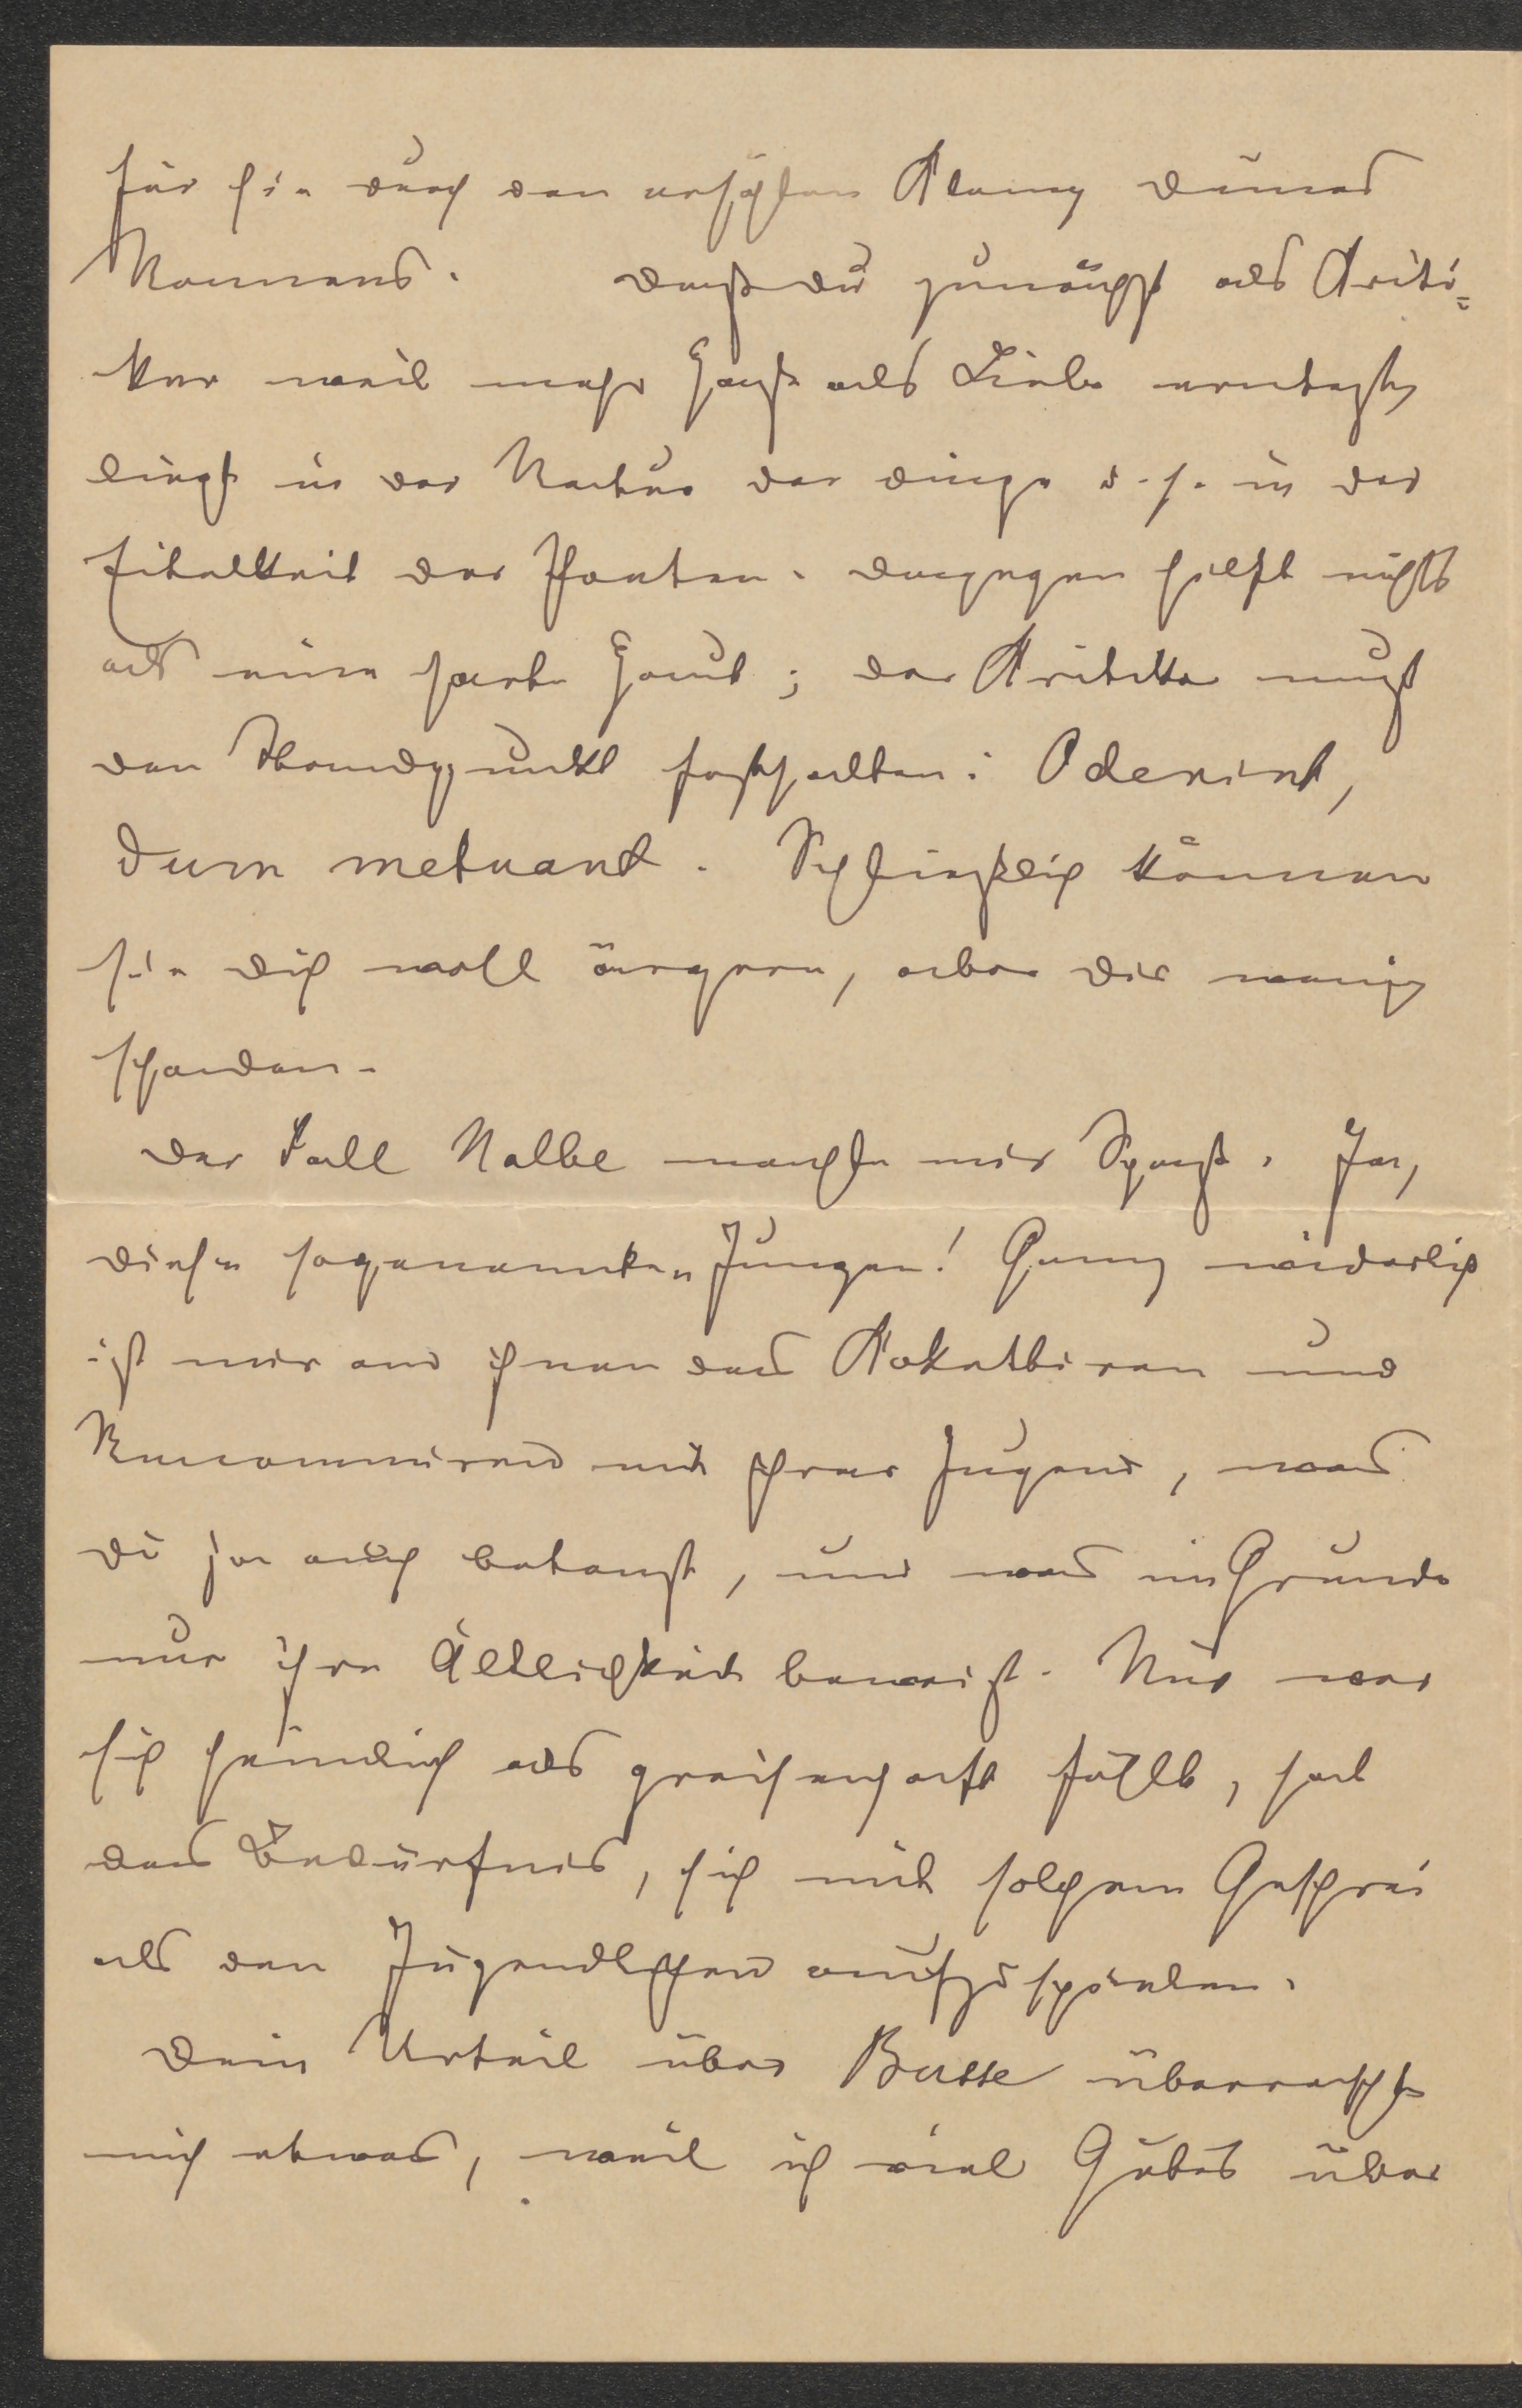 für sie durch den erhöhten Klang Deines
Namens. Dass Du zunächst als Kriti=
ker weit mehr Hass als Liebe erntest,
liegt in der Natur der Dinge d. h. in der
Eitelkeit der Poeten. Dagegen hilft nichts
als eine harte Haut; der Kritiker muß
den Standpunkt festhalten: Oderint,
dum metuant. Schließlich können
sie Dich wohl ärgern, aber Dir wenig
schaden.
Der Fall Halbe machte mir Spaß. Ja,
diese sogenannten Jungen! Ganz widerlich
ist mir an ihnen das Kokettiren und
Renommiren mit ihrer Jugend, was
Du ja auch betonst, und was im Grunde
nur ihre Ältlichkeit beweist. Nur wer
sich heimlich als greisenhaft fühlt, hat
das Bedürfnis, sich mit solchem Geschrei
als den Jugendlichen aufzuspielen.
Dein Urteil über Busse überraschte
mich etwas, weil ich viel Gutes über